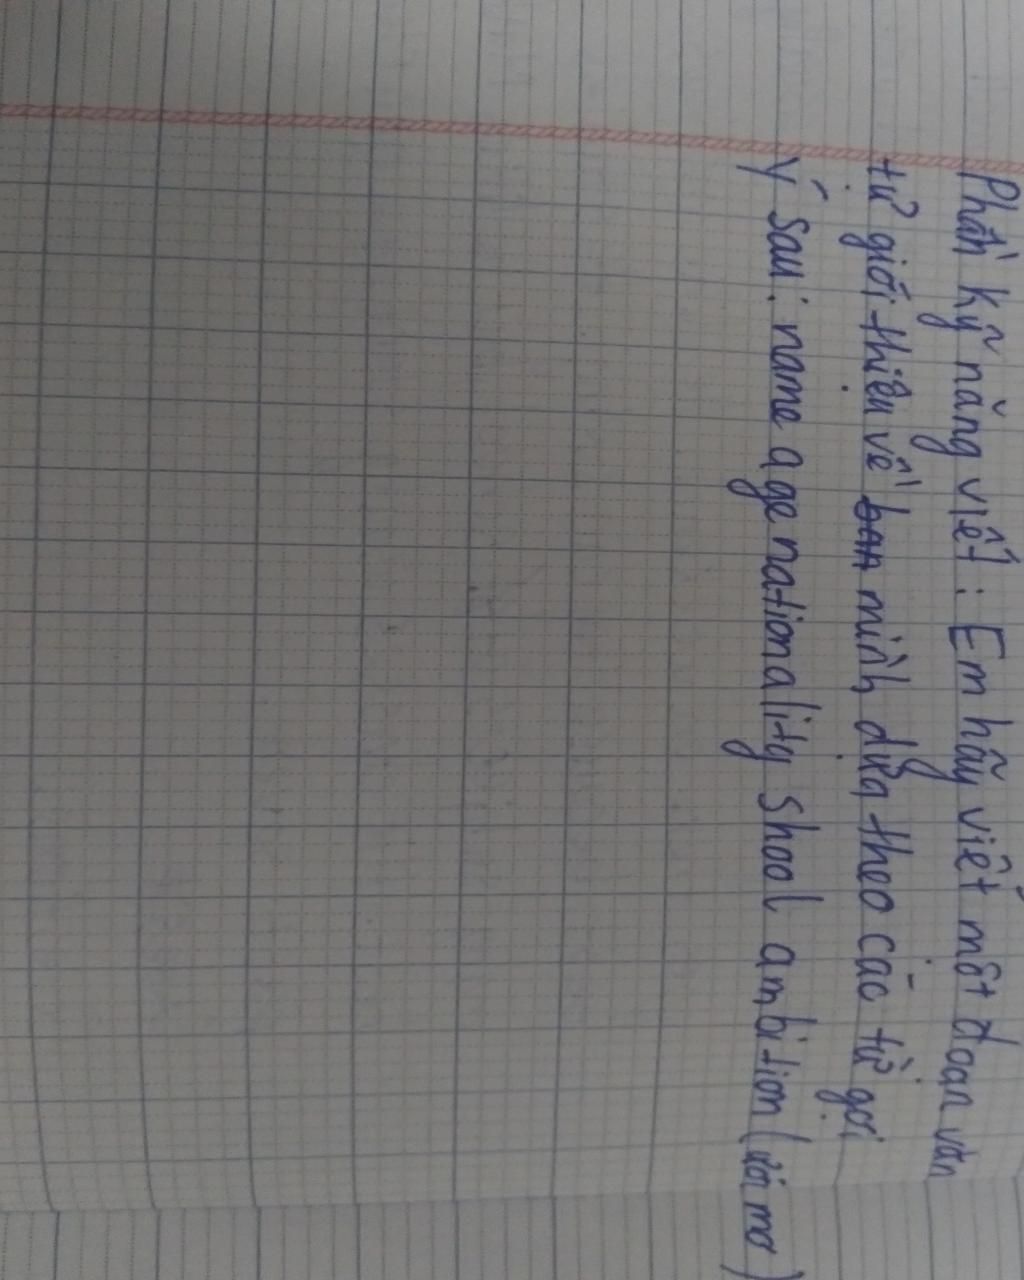 Phần kỹ năng viết: Em hãy viết một đoạn văn
tự giới thiệu về mình dựa theo các từ gợi
ý sau: name age nationality shool ambition (ước mơ)